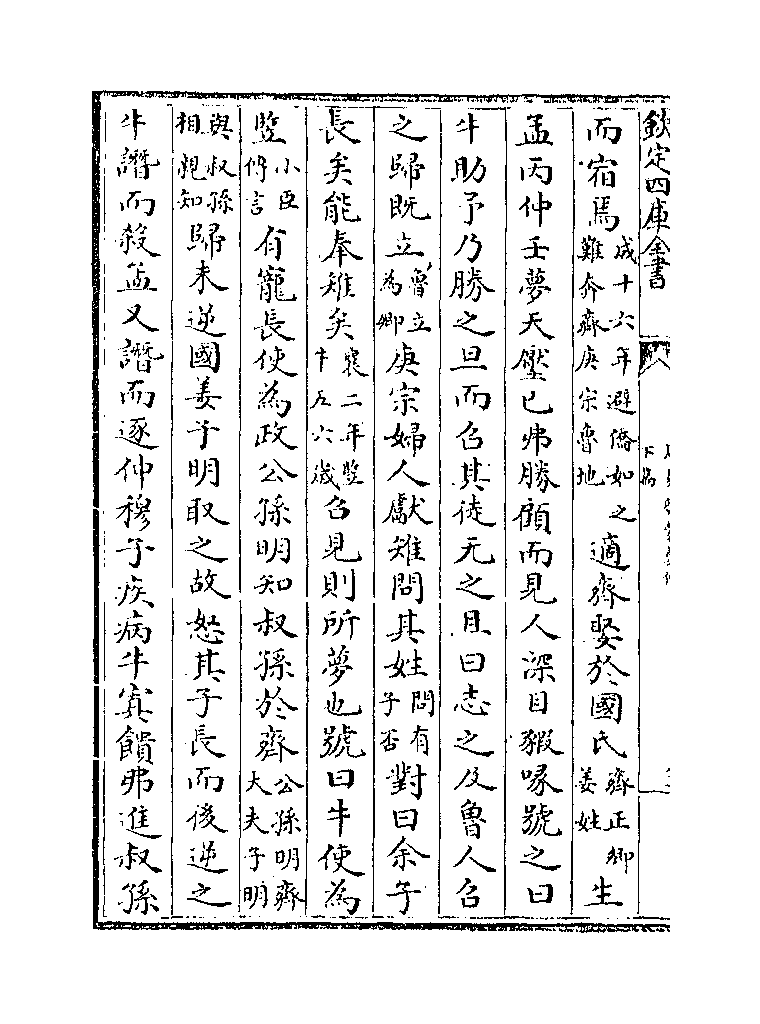 欽定四庫全書
而宿焉成十六年避僑如之難奔齊庚宗魯地適齊娶於國氏齊正卿姜姓生
孟丙仲壬夢天壓已弗勝顧而見人深目豭喙號之曰
牛助予乃勝之旦而召其徒无之且曰志之及魯人召
之歸既立魯立為卿庚宗婦人獻雉問其姓問有子否對曰余子
長矣能奉雉矣襄二年豎牛五六歲召見則所夢也號曰牛使為
豎小臣傳言有寵長使為政公孫明知叔孫於齊公孫明齊大夫子明
與叔孫相親知歸未逆國姜子明取之故怒其子長而後逆之
牛譖而殺孟又譖而逐仲穆子疾病牛寘饋弗進叔孫